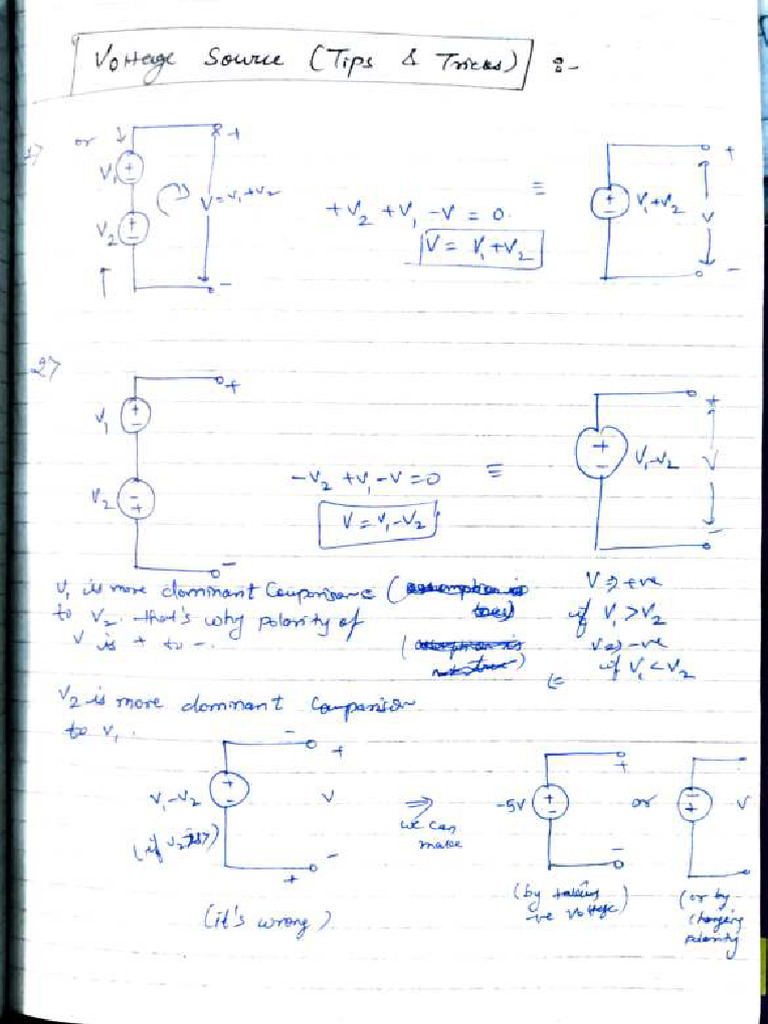 Voltage Source (Tips & Tricks) :-
1) or
V1
V2
V = V1 + V2
+
-
+V2 + V1 - V = 0.
V = V1 + V2
≡
V1 + V2
V
+
-
2)
V1
V2
+
-
-V2 + V1 - V = 0
V = V1 - V2
≡
V1 - V2
V
+
-
V1 is more dominant Comparison
to V2. that's why polarity of
V is + to -.
V ⇒ +ve
if V1 > V2
V ⇒ -ve
if V1 < V2
V2 is more dominant Comparison
to V1.
V1 - V2
V
(it's wrong)
⇒
we can
make
-5V
(by taking
-ve voltage)
or
V
(or by
changing
polarity)